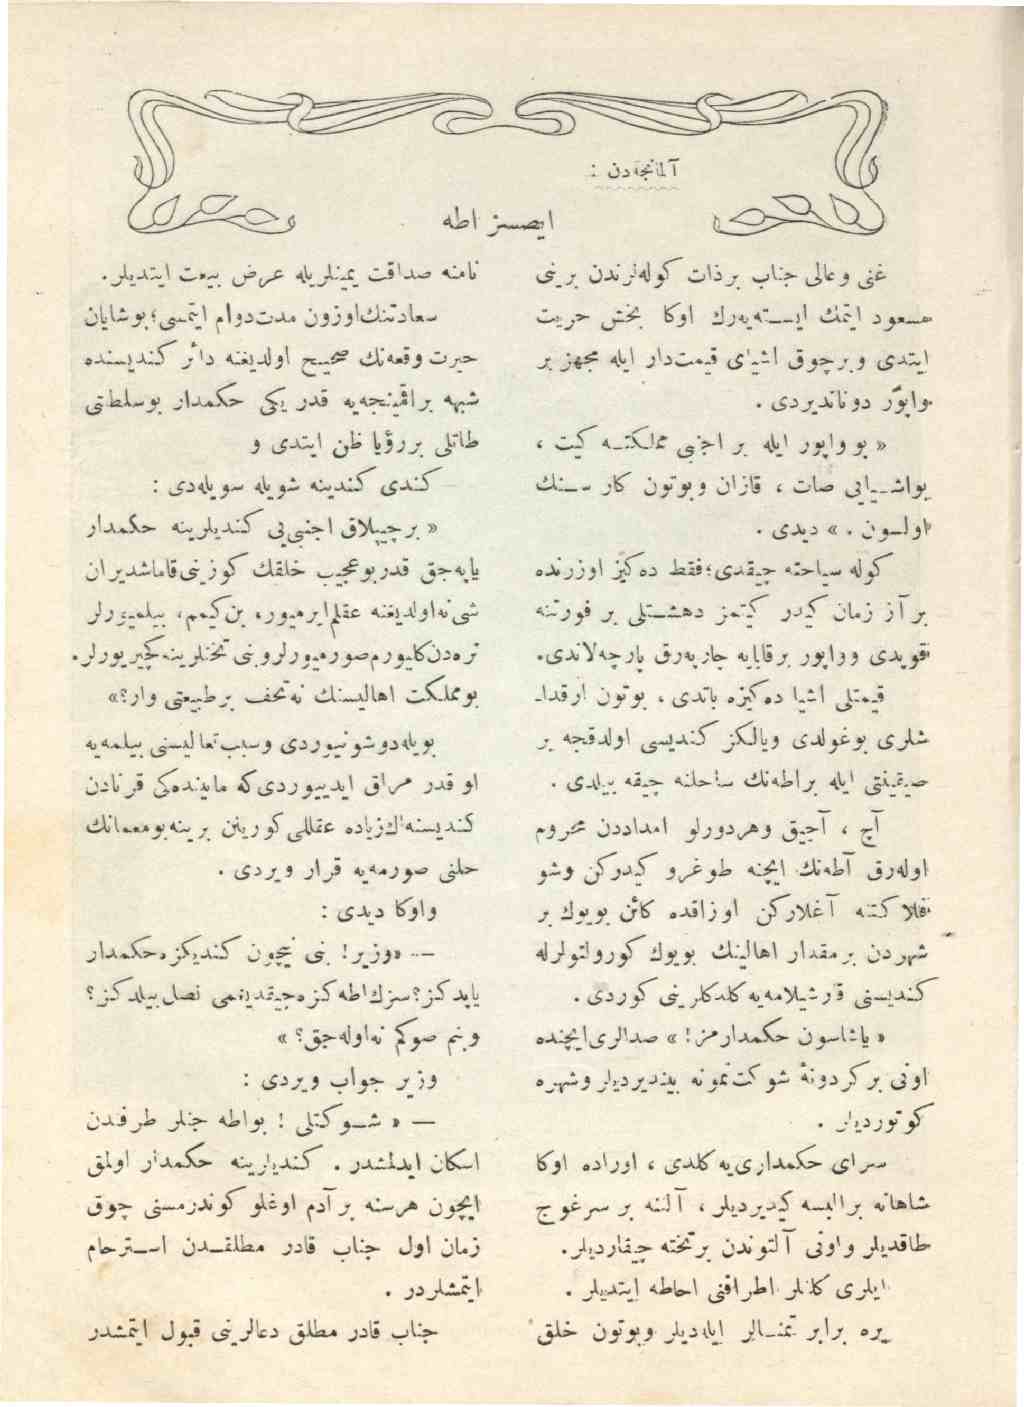 آلمانجه‌دن :
ایصسز اطه
غنی وعالی جناب برذات کوله‌لرندن برینی
مسعود ایتمك ایسته‌یه‌رك اوکا بخش حریت
ایتدی وبرچوق اشیای قیمت‌دار ایله مجهز بر
واپور دوناتدیردی .
« بو واپور ایله بر اجنبی مملکته کیت ،
بواشیایی صات ، قازان وبوتون کار سنك
اولسون . » دیدی .
کوله سیاحته چیقدی؛ فقط ده‌کیز اوزرنده
بر آز زمان کیدر کیتمز دهشتلی بر فورتنه
قوپدی وواپور برقایایه چارپه‌رق پارچه‌لاندی.
قیمتلی اشیا ده‌کیزه باتدی ، بوتون آرقدا‌-
شلری بوغولدی ویالکز کندیسی اولدقجه بر
صیقینتی ایله براطه‌نك ساحلنه چیقه بیلدی .
آچ ، آجیق وهردورلو امداددن محروم
اوله‌رق آطه‌نك ایچنه طوغرو کیدرکن وشو
فلاکتنه آغلارکن اوزاقده کائن بویوك بر
شهردن برمقدار اهالینك بویوك کورولتولرله
کندیسنی قارشیلامه‌یه کلدکلرینی کوردی .
« یاشاسون حکمدارمز! » صدالری‌ایچنده
اونی برکردونهٔ شوکت‌نمونه بیندیردیلر وشهره
کوتوردیلر .
سرای حکمداری‌یه کلدی ، اوراده اوکا
شاهانه برالبسه کیدیردیلر ، آلننه بر سرغوج
طاقدیلر واونی آلتوندن برتخته چیقاردیلر.
ایلری کلانلر اطرافنی احاطه ایتدیلر .
یره برابر تمنالر ایله‌دیلر وبوتون خلق
نامنه صداقت یمینلریله عرض بیعت ایتدیلر .
سعادتنك‌اوزون مدت‌دوام ایتمسی؛ بوشایان
حیرت وقعه‌نك صحیح اولدیغنه دائر کندیسنده
شبهه براقمینجه‌یه قدر یکی حکمدار بوسلطنتی
طاتلی بررؤیا ظن ایتدی و
کندی کندینه شویله سویله‌دی :
« برچیپلاق اجنبی‌یی کندیلرینه حکمدار
یاپه‌جق قدربوعجیب خلقك کوزینی‌قاماشدیران
شی‌نه‌اولدیغنه عقلم‌ایرمیور، بن‌کیمم، بیلمیورلر
نره‌دن‌کلیورم‌صورمیورلروبنی تختلرینه‌کچیریورلر.
بومملکت اهالیسنك نه‌تحف برطبیعتی وار؟»
بویله‌دوشونیوردی وسبب‌تعالیسنی بیلمه‌یه
او قدر مراق ایدییوردی‌که ماییننده‌کی قرنادن
کندیسنه‌اك‌زیاده عقللی‌کورینن برینه‌بومعمانك
حلنی صورمه‌یه قرار ویردی .
واوکا دیدی :
— «وزیر! بنی نیچون کندیکزه‌حکمدار
یاپدکز؟سزك‌اطه‌کزه‌چیقدیغمی نصل‌بیلدکز؟
وبنم صوکم نه‌اوله‌جق؟ »
وزیر جواب ویردی :
— « شوکتلی ! بواطه جنلر طرفندن
اسکان ایدلمشدر . کندیلرینه حکمدار اولمق
ایچون هرسنه بر آدم اوغلو کوندرمسنی چوق
زمان اول جناب قادر مطلقدن استرحام
ایتمشلردر .
جناب قادر مطلق دعالرینی قبول ایتمشدر